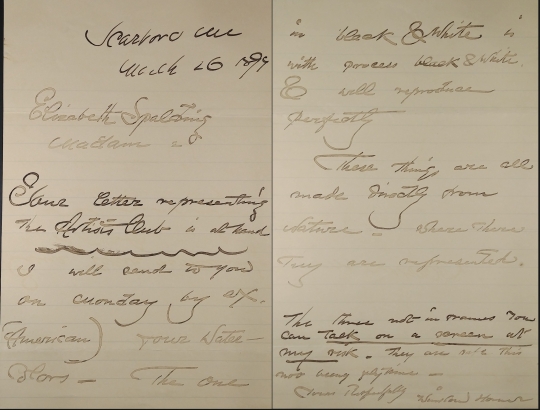 Scarboro Me
March 26 1899
Elizabeth Spalding
Madam =
Your letter representing
the Artists Club is at hand
I will send to you
on Monday by ex.
(American) four Water-
Colors - The one
"in black & White is
with process black & White.
& will reproduce
perfectly
These things are all
made directly from
Nature - where there
They are represented.
The three not in frames You
can take on a screen at
my risk. They are
not being
Yours Respectfully Winslow Homer